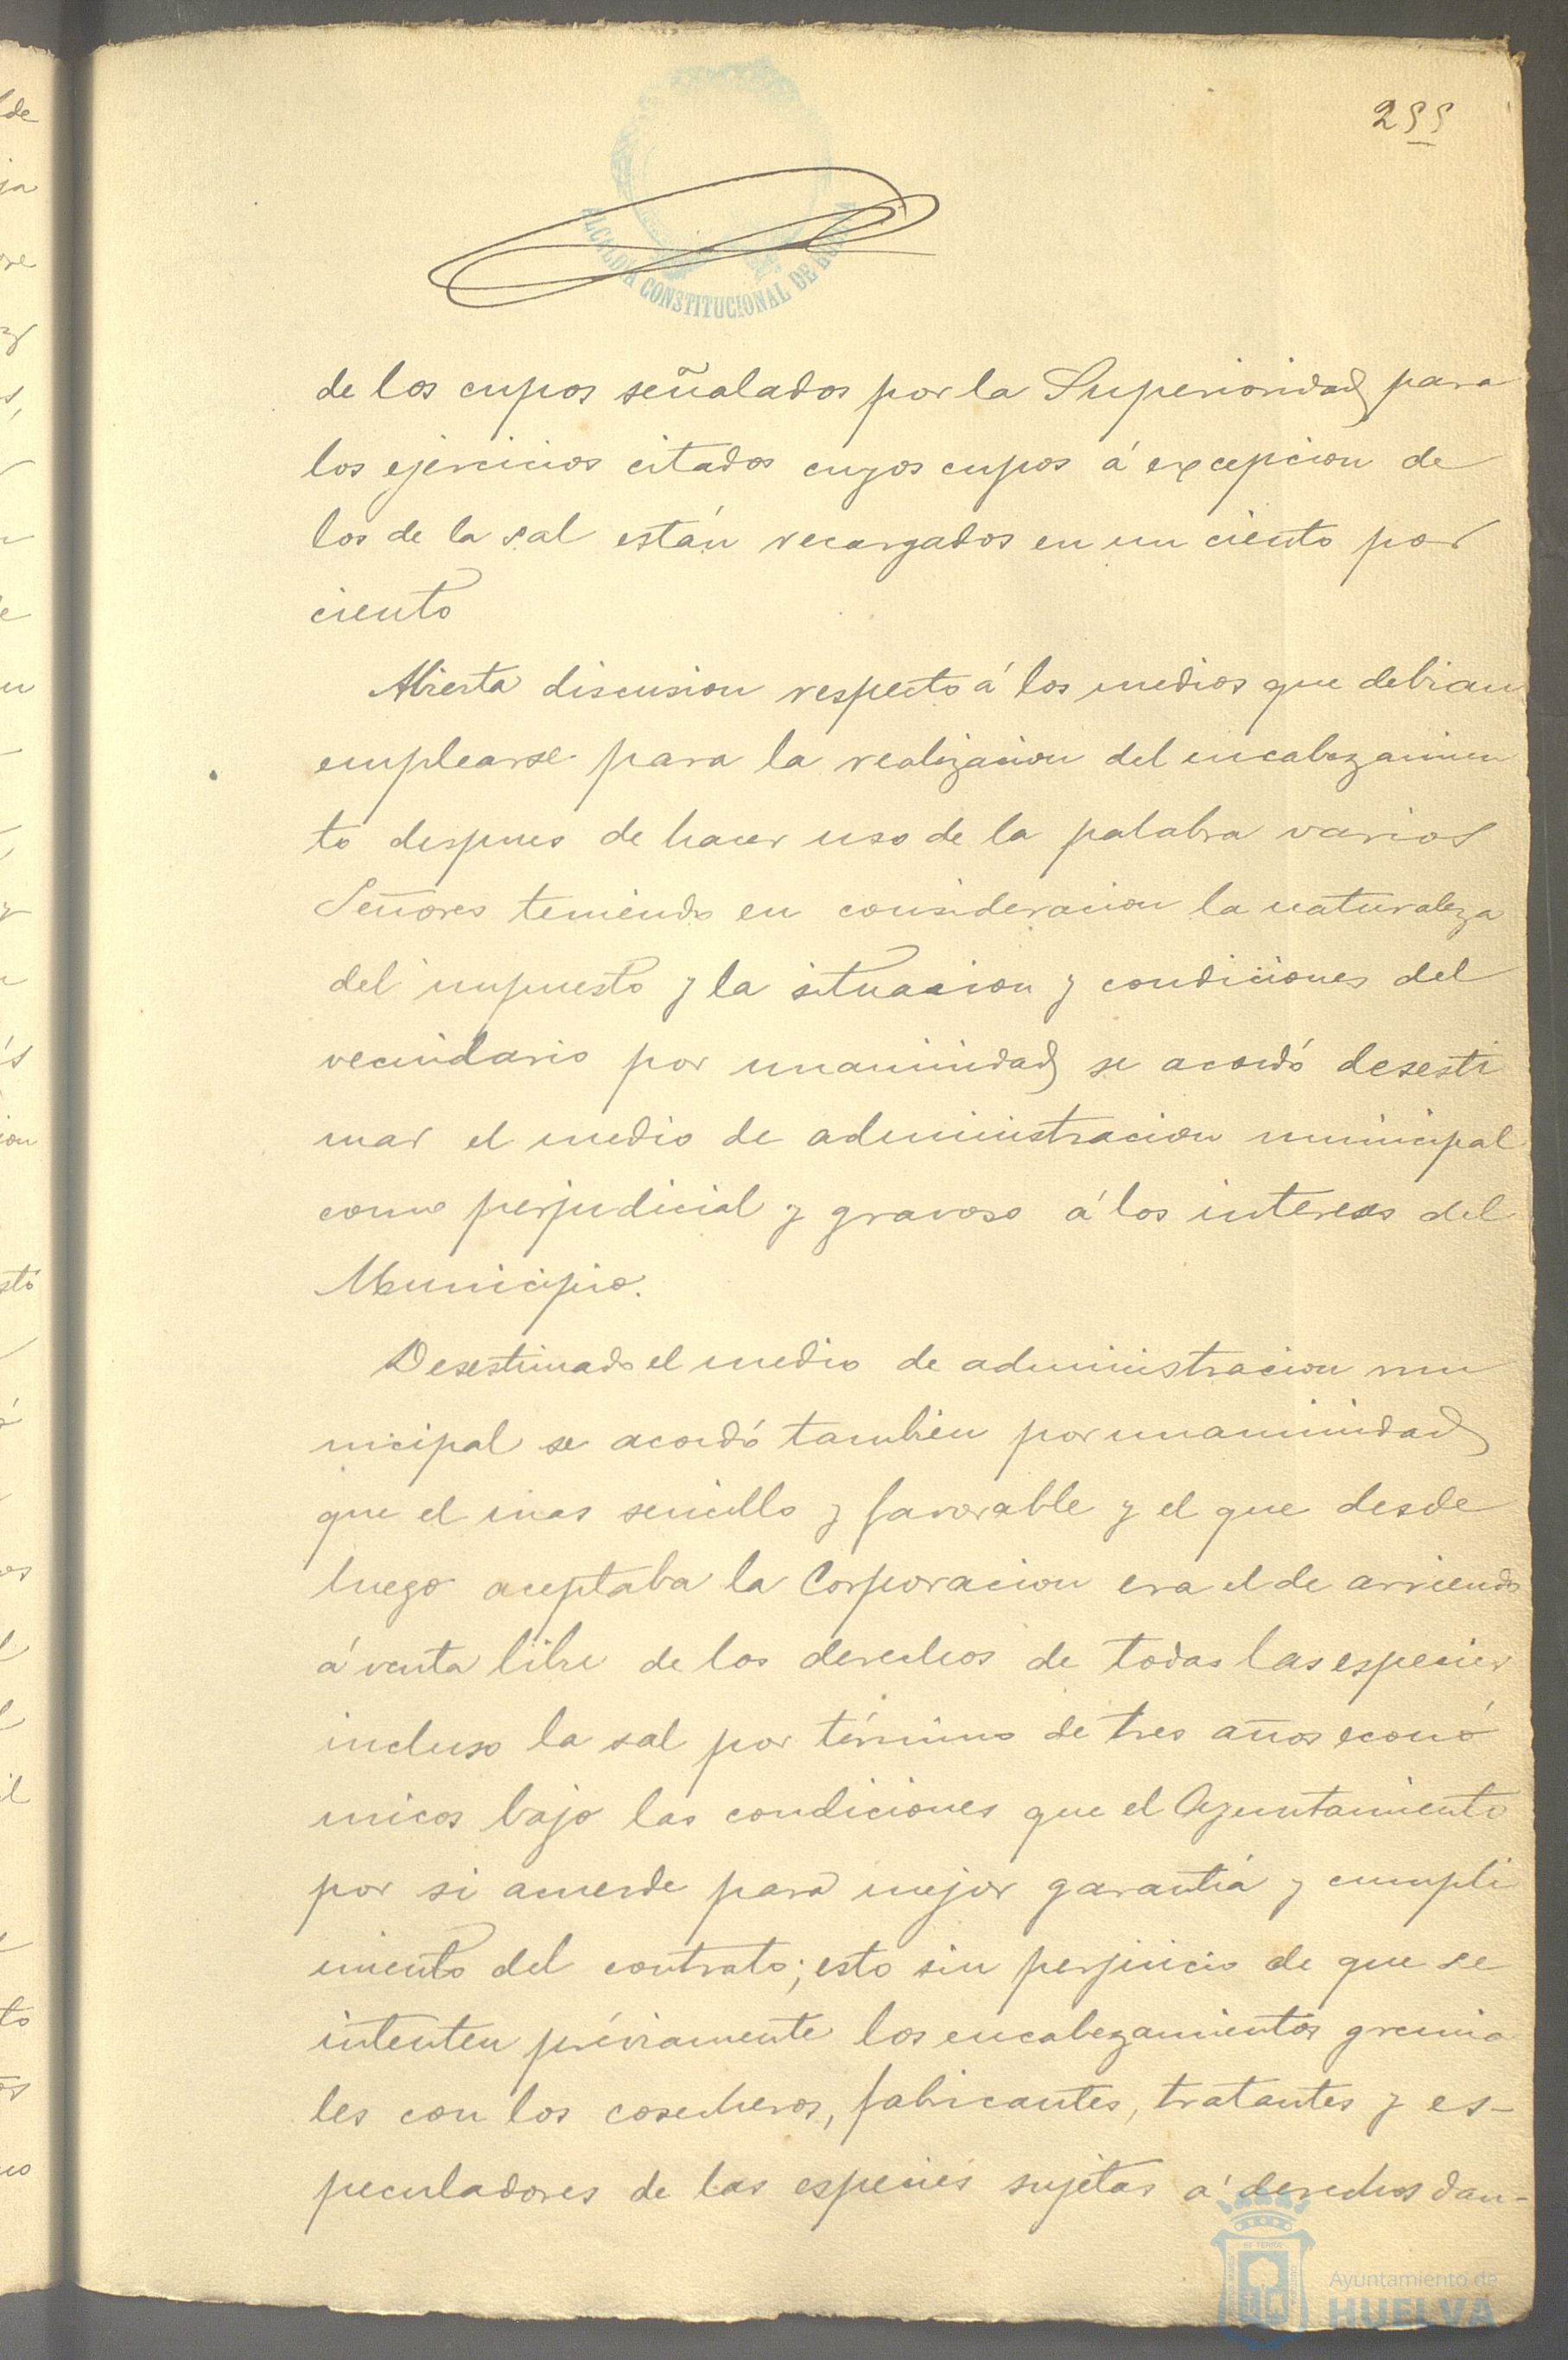 255
ALCALDIA CONSTITUCIONAL DE HUELVA
de los cupos señalados por la Superioridad para
los ejercicios citados cuyos cupos á excepcion de
los de la sal están recargados en un ciento por
ciento
Abierta discusion respecto á los medios que debian
emplearse para la realizacion del encabezamien
to despues de hacer uso de la palabra varios
Señores teniendo en consideracion la naturaleza
del impuesto y la situacion y condiciones del
vecindario por unanimidad se acordó desesti
mar el medio de administracion municipal
como perjudicial y gravoso á los intereses del
Municipio.
Desestimado el medio de administracion mu
nicipal se acordó tambien por unanimidad
que el mas sencillo y favorable y el que desde
luego aceptaba la Corporacion era el de arriendo
á venta libre de los derechos de todas las especies
incluso la sal por término de tres años econó
micos bajo las condiciones que el Ayuntamiento
por si acuerde para mejor garantia y cumpli
miento del contrato; esto sin perjuicio de que se
intenten préviamente los encabezamientos gremia
les con los cosecheros, fabricantes, tratantes y es-
peculadores de las especies sujetas á derechos dan-
Ayuntamiento de
HUELVA